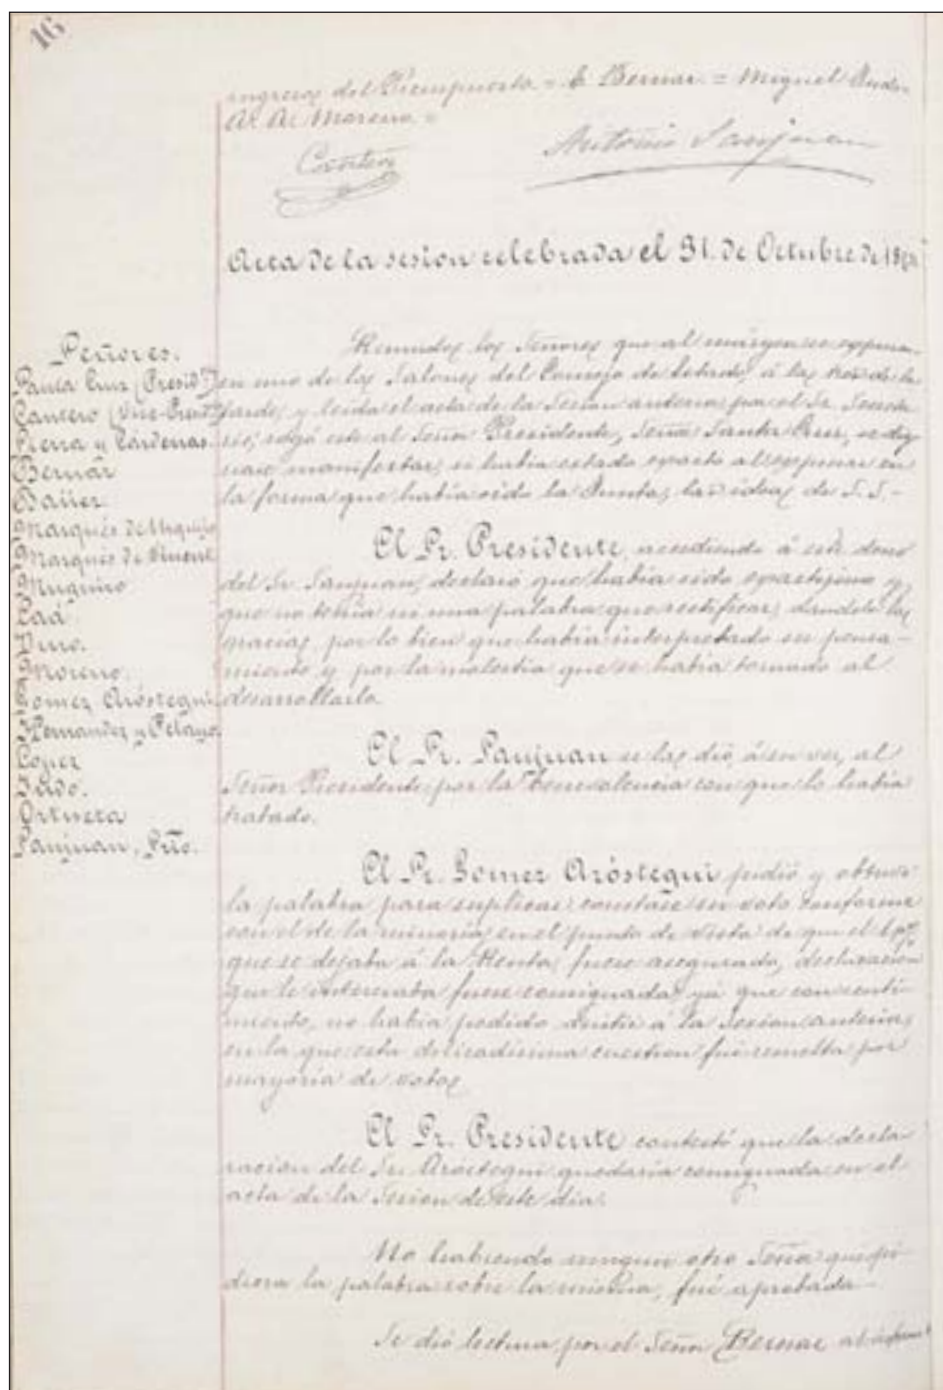 16
ingresos del Presupuesto = E. Bernar = Miguel
A. A. Moreno =
Cantero
Antonio Sanjuan
Acta de la sesion celebrada el 31 de Octubre de
Señores.
Santa Cruz (Presid.te)
Cantero (Vice-Presid.te)
Sierra y Cárdenas.
Bernar
Baüer
Marqués de Urquijo
Marqués de
Muguiro
Laá
Moreno.
Gomez Aróstegui
Hernandez y Pelayo.
Lopez
Ortueta
Sanjuan, Srio.
Reunidos los Señores que al margen se expresan
en uno de los Salones del Consejo de Estado, á las tres de la
tarde, y leida el acta de la Sesion anterior por el Sr. Secreta-
rio, rogó este al Señor Presidente, Señor Santa Cruz, se dig-
nase manifestar, si habia estado exacto al exponer en
la forma que habia oido la Junta, las ideas de S. S. -
El Sr. Presidente, accediendo á este deseo
del Sr. Sanjuan, declaró que habia sido exactísimo y
que no tenia ni una palabra que rectificar, dándole las
gracias por lo bien que habia interpretado su pensa-
miento y por la molestia que se habia tomado al
desarrollarlo.
El Sr. Sanjuan se las dió, á su vez, al
Señor Presidente por la benevolencia con que lo habia
tratado.
El Sr. Gomez Aróstegui pidió y obtuvo
la palabra para suplicar constase su voto conforme
con el de la minoría en el punto de vista de que el
que se dejaba á la Renta, fuese asegurado, declaracion
que le interesaba fuese consignada, ya que con senti-
miento, no habia podido asistir á la Sesion anterior,
en la que esta delicadísima cuestion fué resuelta por
mayoría de votos
El Sr. Presidente contestó que la decla-
racion del Sr. Aróstegui quedaría consignada en el
acta de la Sesion de este dia.
No habiendo ningun otro Señor que pi-
diera la palabra sobre la misma, fué aprobada -
Se dió lectura por el Señor Bernar al